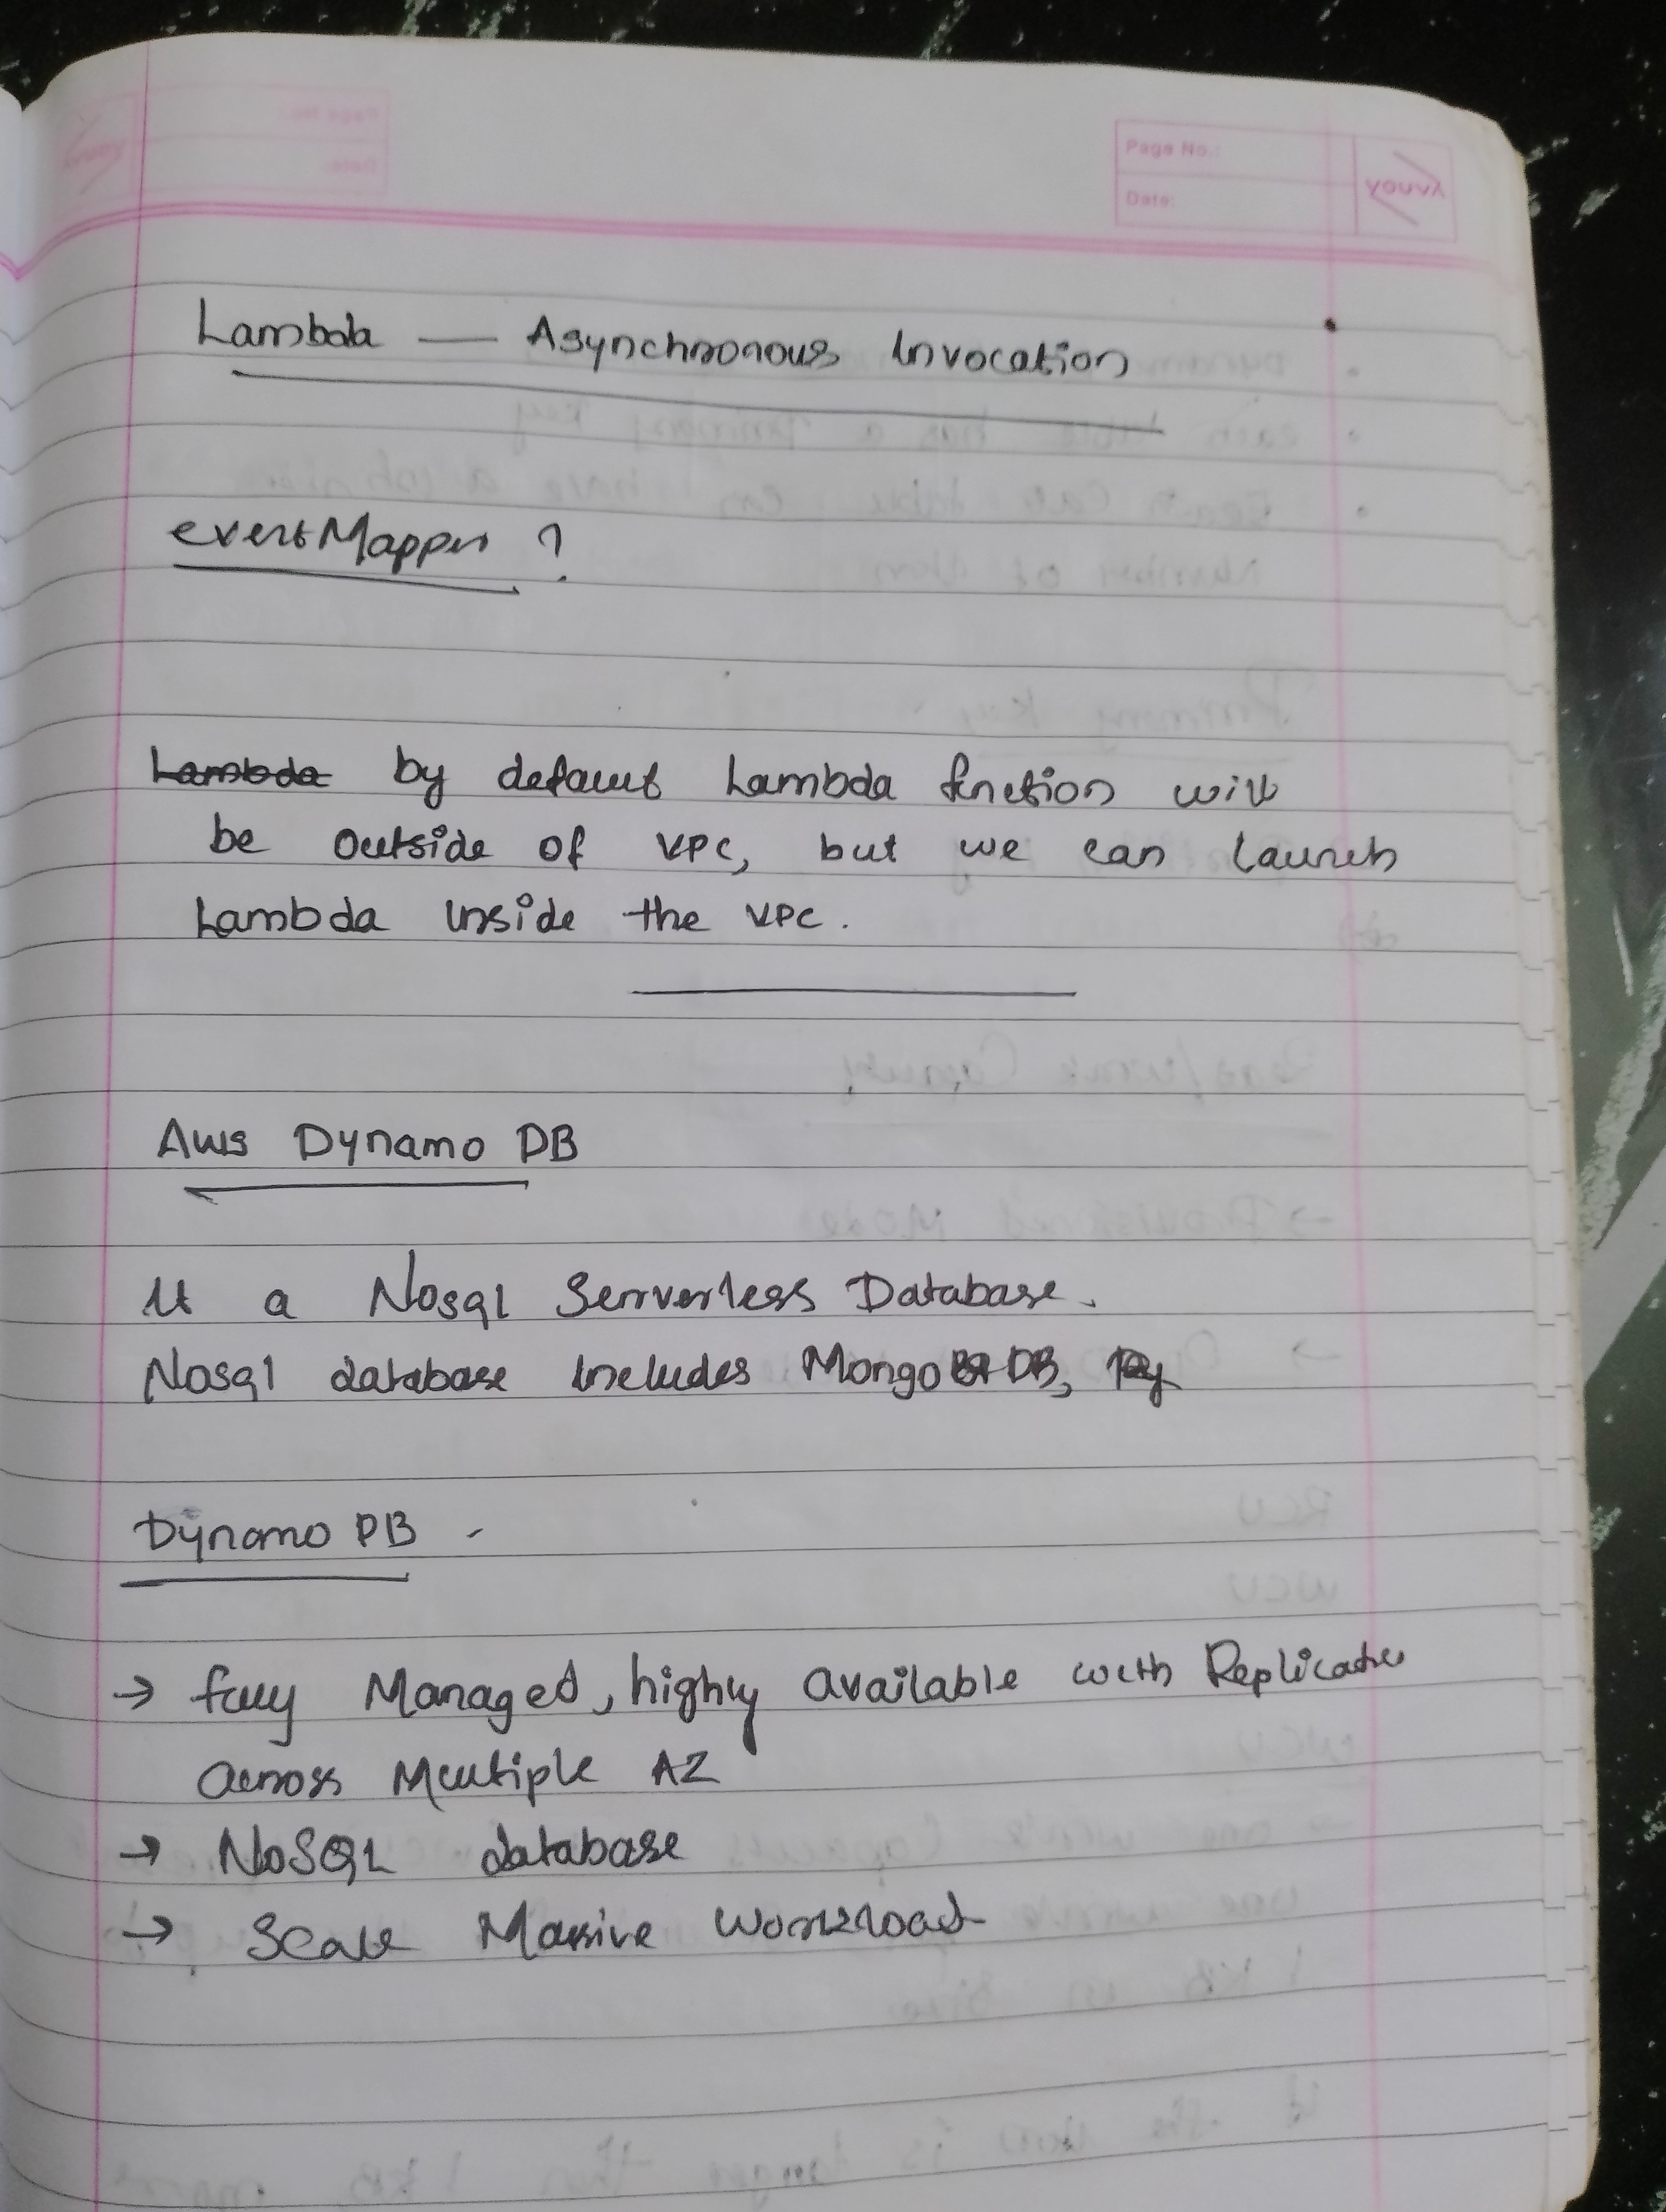 Page No.:
Date:
Youva
Lambda — Asynchronous Invocation
eventMapper ?
Lambda by default Lambda function will
be outside of VPC, but we can launch
Lambda inside the VPC.
Aws Dynamo DB
It a Nosql Serverless Database.
Nosql database includes Mongo DB,
Dynamo DB -
→ fully Managed, highly available with Replication
across Multiple AZ
→ NoSQL database
→ Scale Massive workload